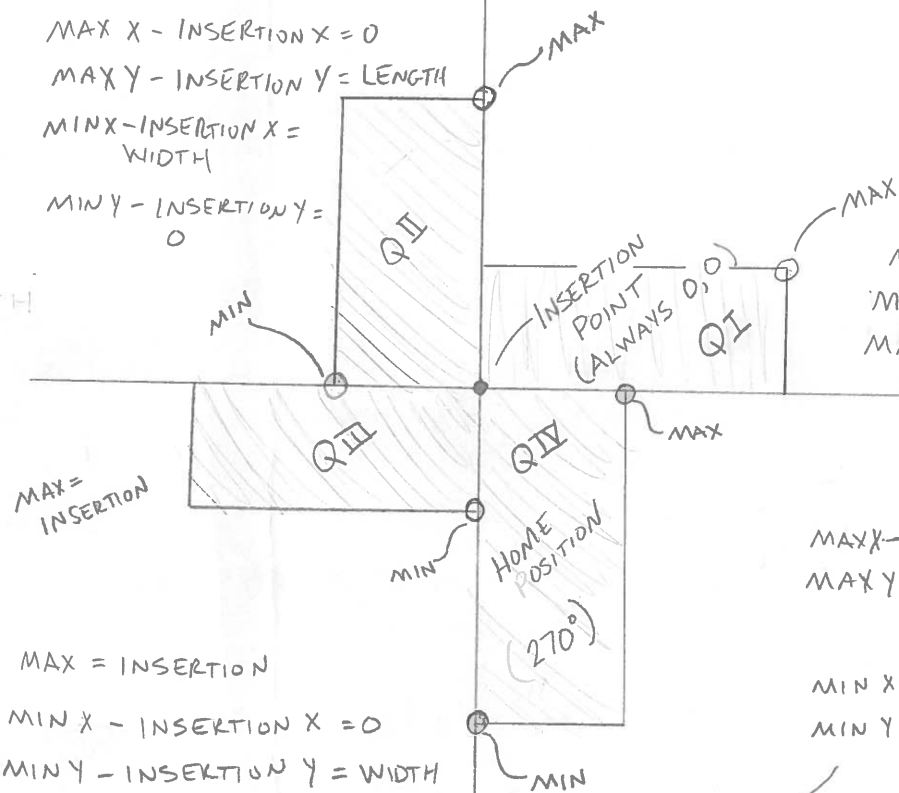 MAX X - INSERTION X = 0
MAX Y - INSERTION Y = LENGTH
MIN X - INSERTION X =
WIDTH
MIN Y - INSERTION Y =
0
MAX
Q II
MAX
INSERTION
POINT
(ALWAYS 0,0)
Q I
M
MA
MIN
Q III
Q IV
MAX
MAX =
INSERTION
MIN
HOME
POSITION
(270°)
MAX X -
MAX Y
MAX = INSERTION
MIN X - INSERTION X = 0
MIN Y - INSERTION Y = WIDTH
MIN X
MIN Y
MIN